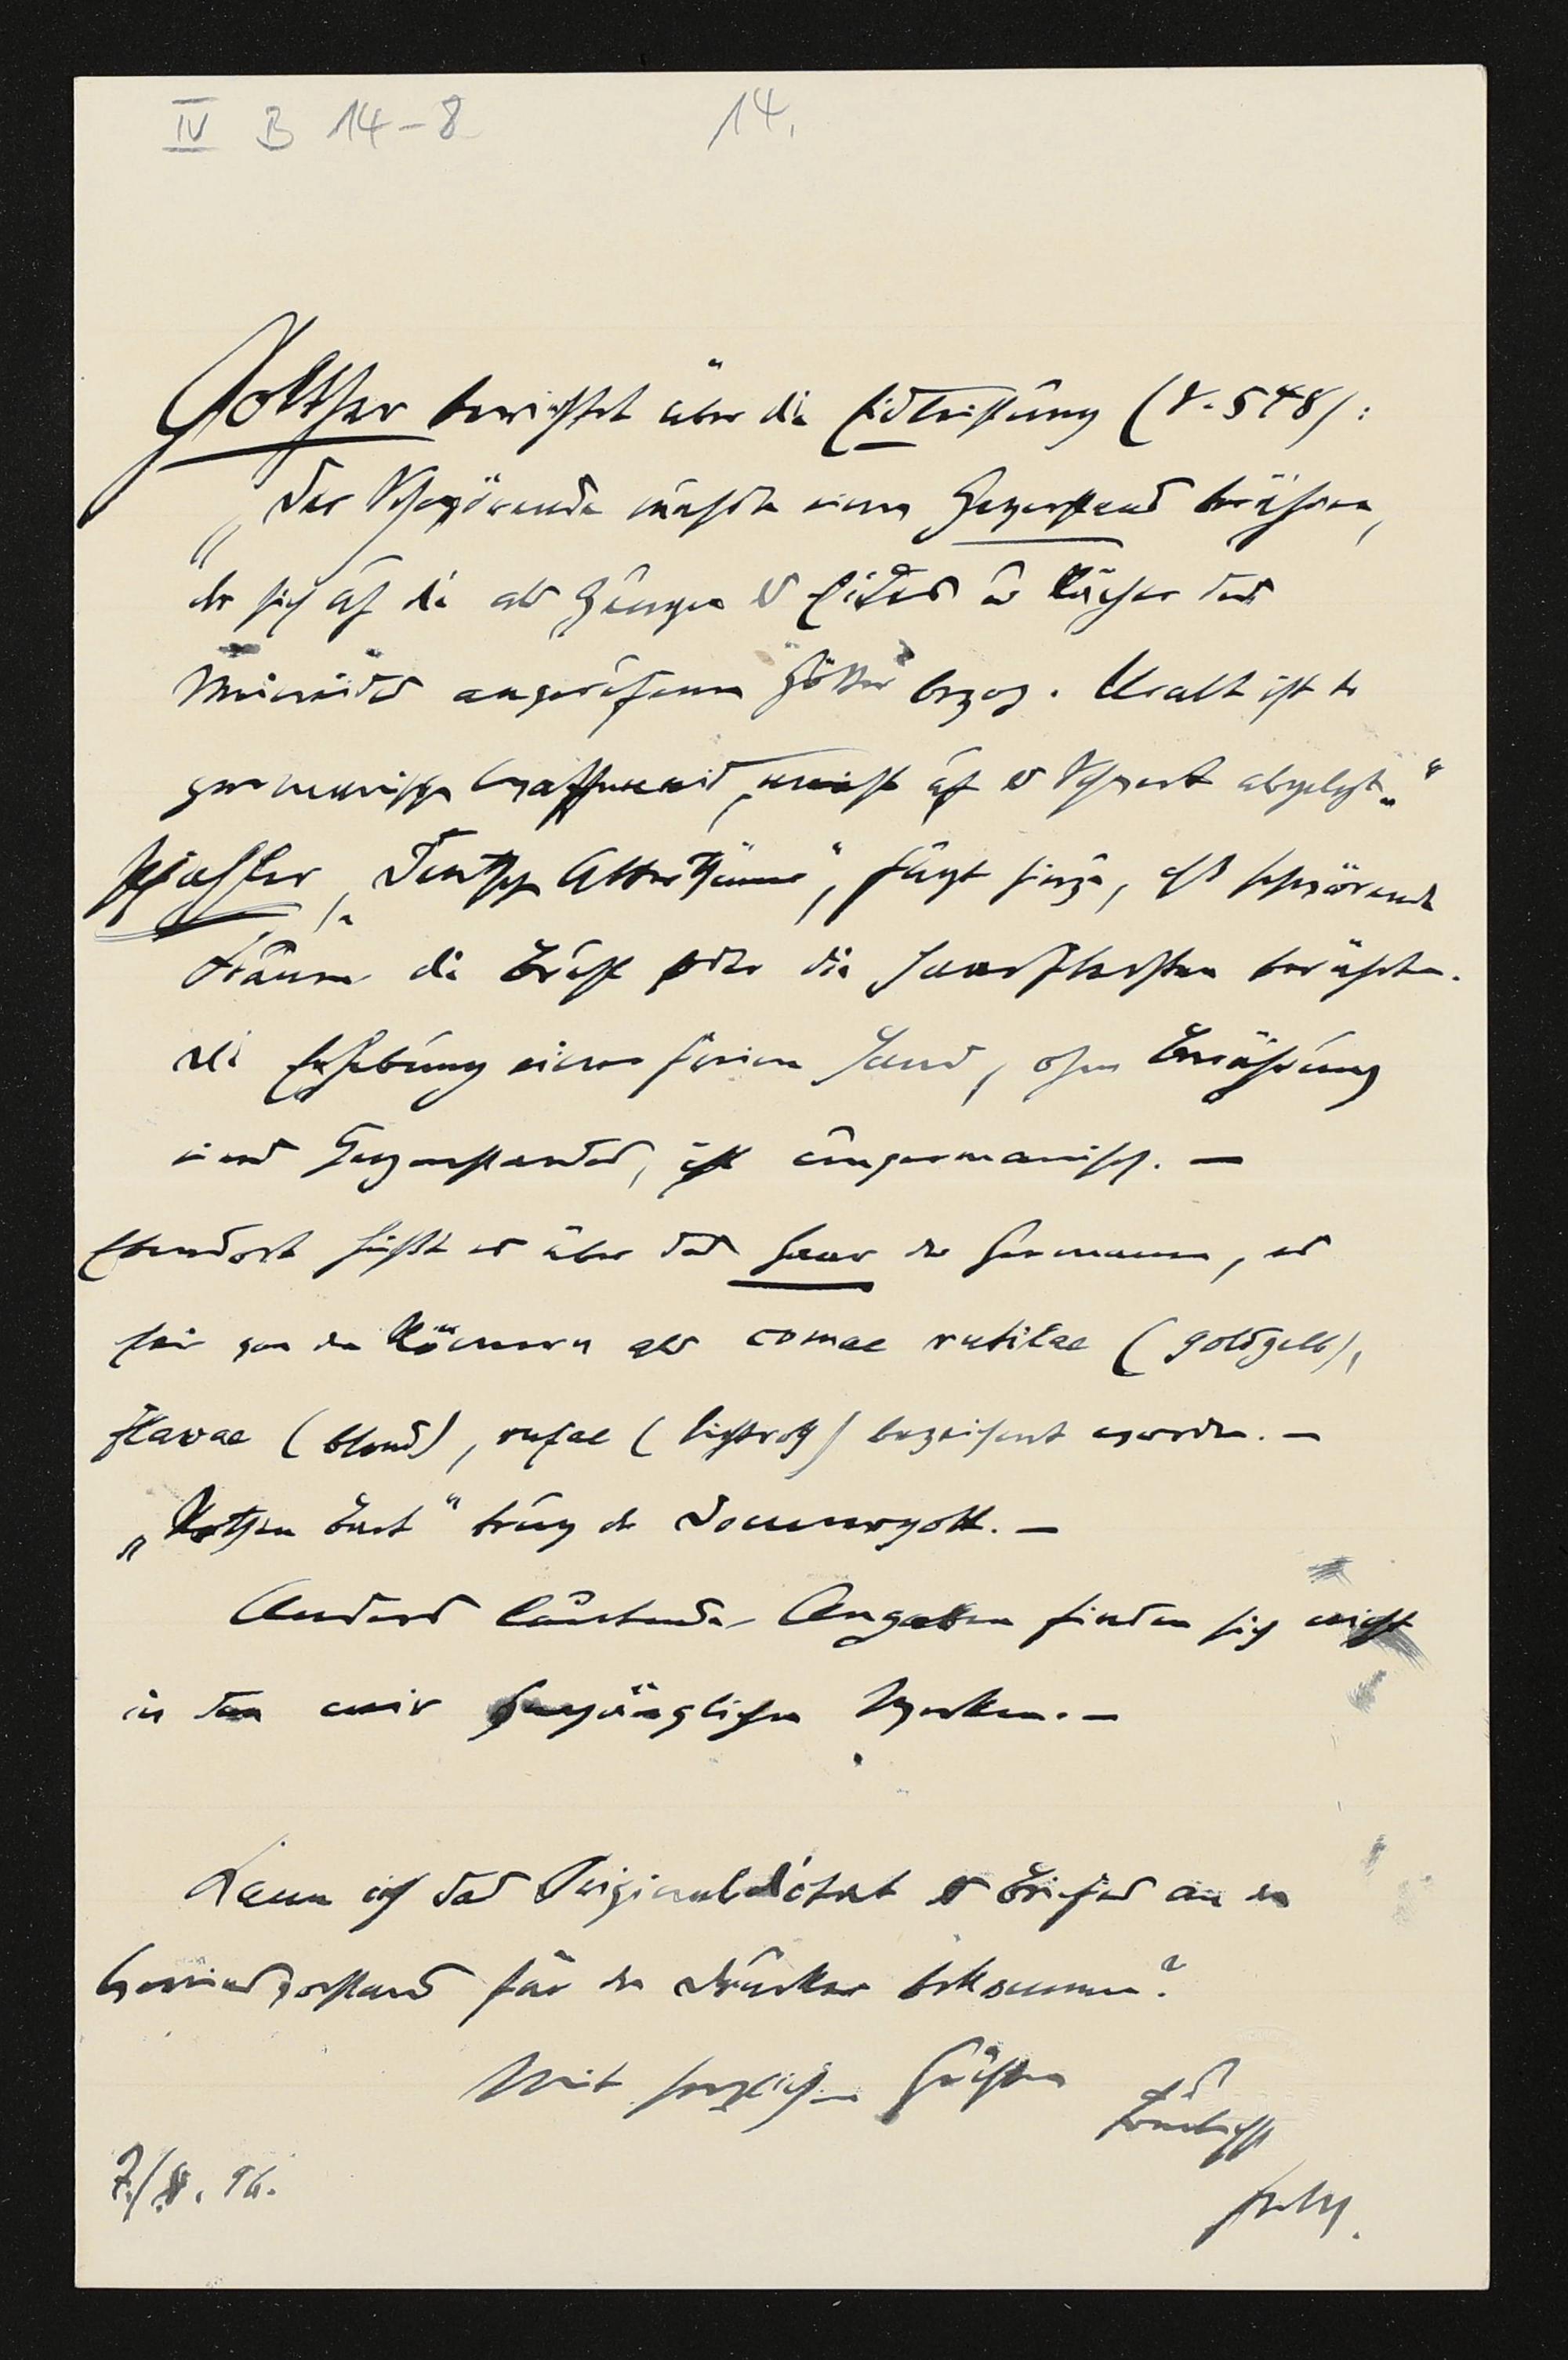 IV B 14-8 14.
Golther berichtet über die Eidleistung (S. 548):
„Der Schwörende musste einen Gegenstand berühren,
der sich auf die als Zeugen des Eides u. Rächer des
Meineides angerufenen Götter bezog. Uralt ist der
germanische Waffeneid, meist auf das Schwert abgelegt."
„Deutsche Alterthümer", fügt hinzu, dass schwörende
Frauen die Brust oder die Haarflechten berührten.
Die Erhebung einer freien Hand, ohne Berührung
eines Gegenstandes, ist ungermanisch. —
Ebendort heißt es über das Haar der Germanen, es
sei von den Römern als comae rutilae (goldgelb),
flavae (blond), rufae (lichtroth) bezeichnet worden. —
„Rothen Bart" trug der Donnergott. —
Anders lautende Angaben finden sich nicht
in den mir zugänglichen Werken. —
Kann ich das Originaldictat des Briefes an den
für den Drucker bekommen?
Mit herzlichen Grüßen
7./ . 96.